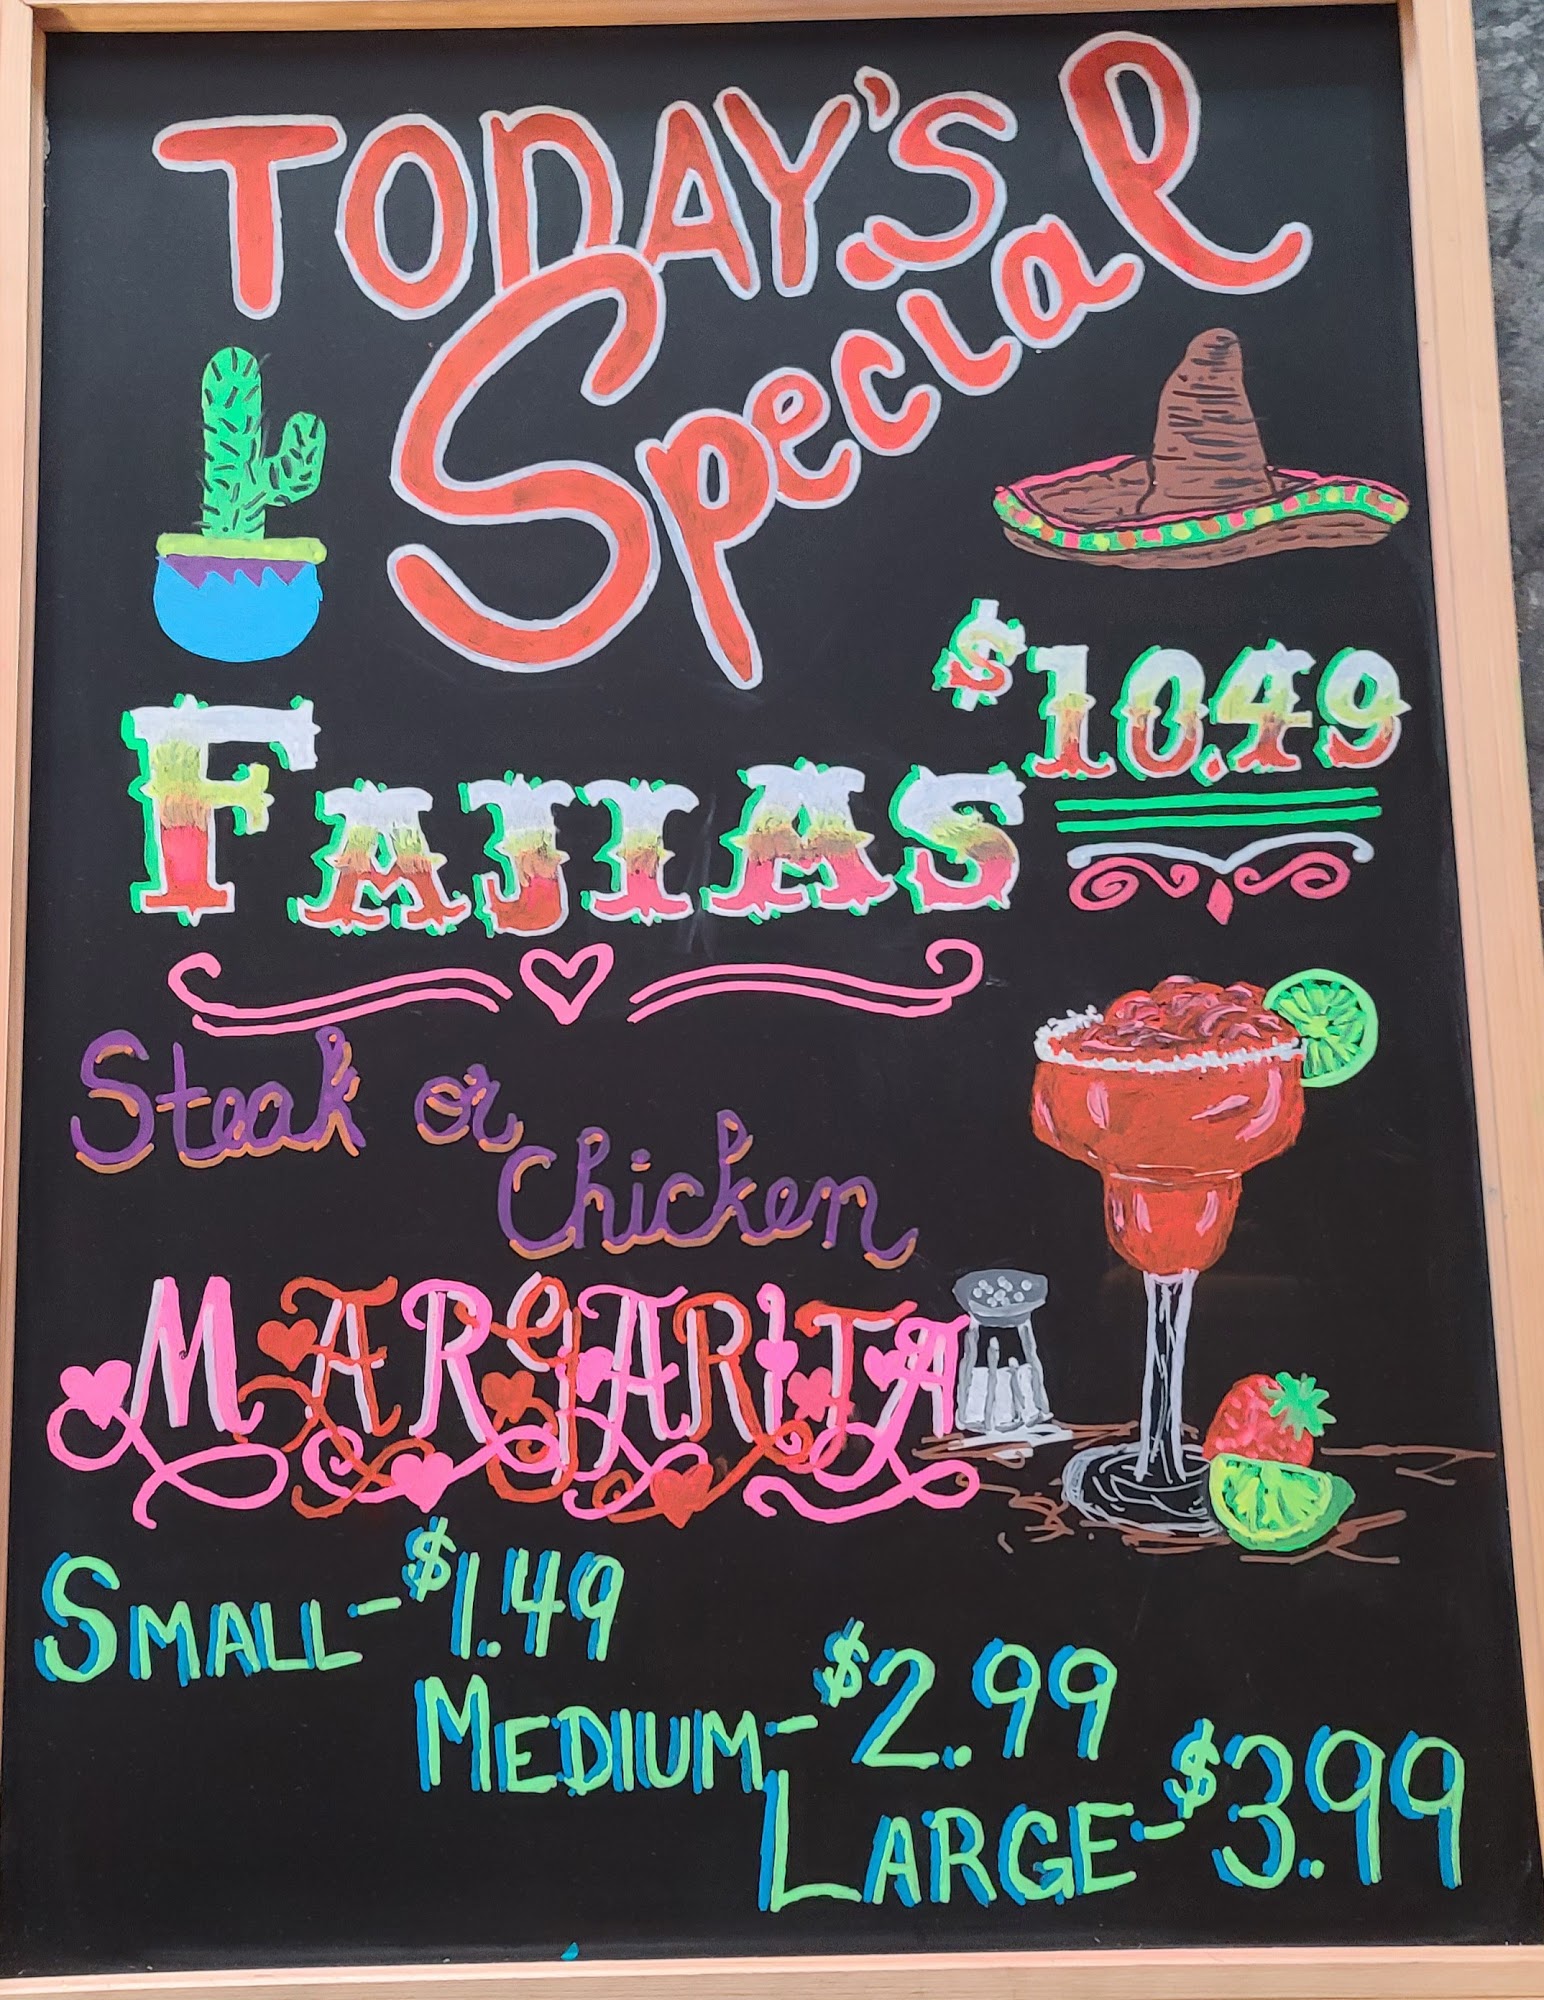 TODAY'S
Special
$10.49
FAJIAS
Steak or
Chicken
MARGARITA
SMALL-$1.49
MEDIUM-$2.99
LARGE-$3.99